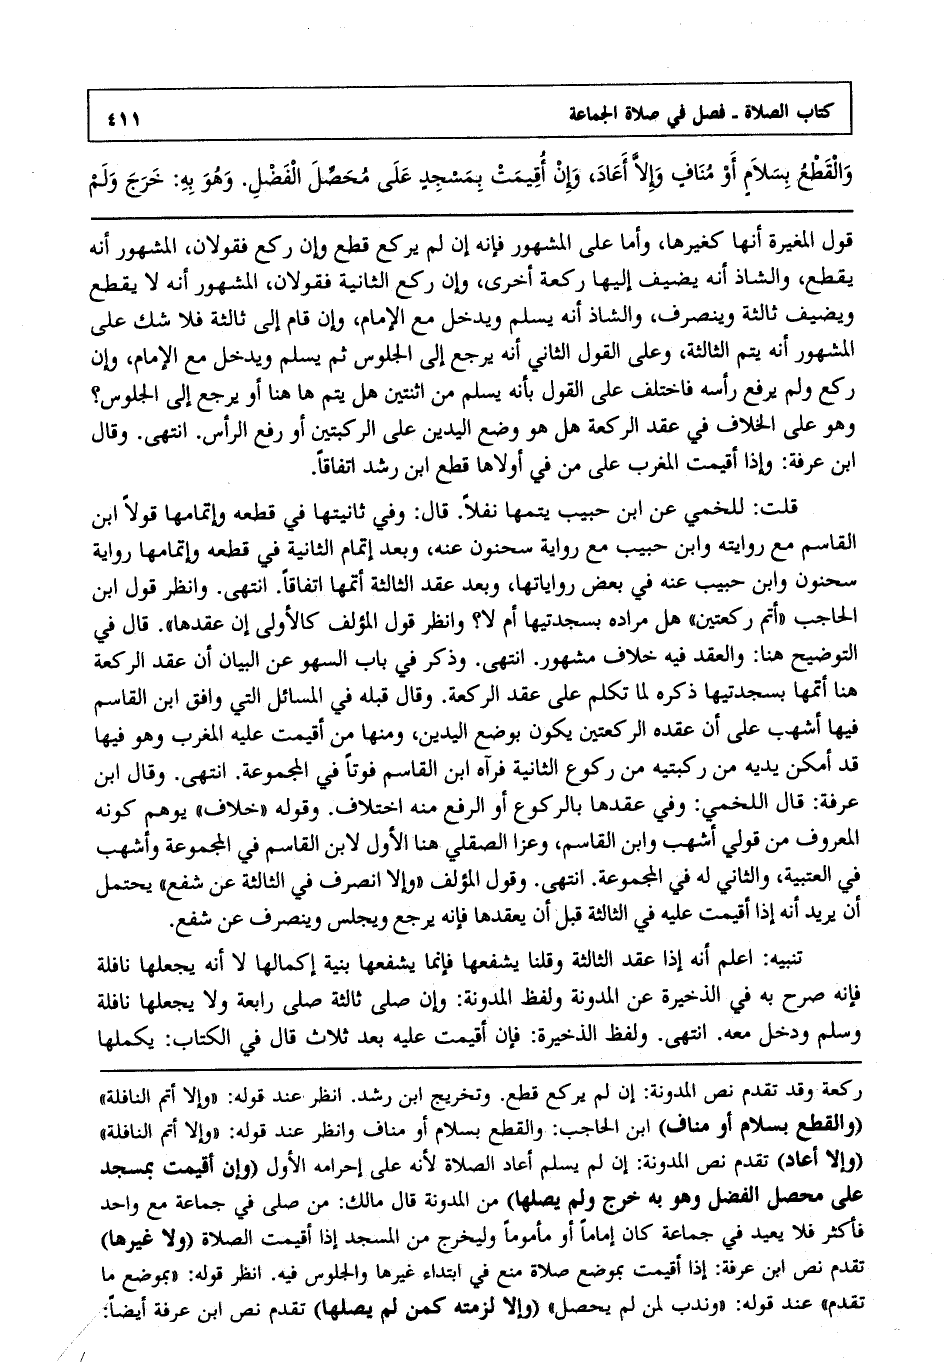 كتاب الصلاة ـ فصل في صلاة الجماعة
٤١١
وَالْقَطْعُ بِسَلَامٍ أَوْ مُنَافٍ وَإِلاَّ أَعَادَ، وَإِنْ أُقِيمَتْ بِمَسْجِدٍ عَلَى مُحَصِّلِ الْفَضْلِ. وَهُوَ بِهِ: خَرَجَ وَلَمْ
قول المغيرة أنها كغيرها، وأما على المشهور فإنه إن لم يركع قطع وإن ركع فقولان، المشهور أنه
يقطع، والشاذ أنه يضيف إليها ركعة أخرى، وإن ركع الثانية فقولان، المشهور أنه لا يقطع
ويضيف ثالثة وينصرف، والشاذ أنه يسلم ويدخل مع الإمام، وإن قام إلى ثالثة فلا شك على
المشهور أنه يتم الثالثة، وعلى القول الثاني أنه يرجع إلى الجلوس ثم يسلم ويدخل مع الإمام، وإن
ركع ولم يرفع رأسه فاختلف على القول بأنه يسلم من اثنتين هل يتم ها هنا أو يرجع إلى الجلوس؟
وهو على الخلاف في عقد الركعة هل هو وضع اليدين على الركبتين أو رفع الرأس. انتهى. وقال
ابن عرفة: وإذا أقيمت المغرب على من في أولاها قطع ابن رشد اتفاقاً.
قلت: للخمي عن ابن حبيب يتمها نفلاً. قال: وفي ثانيتها في قطعه وإتمامها قولاً ابن
القاسم مع روايته وابن حبيب مع رواية سحنون عنه، وبعد إتمام الثانية في قطعه وإتمامها رواية
سحنون وابن حبيب عنه في بعض رواياتها، وبعد عقد الثالثة أتمها اتفاقاً. انتهى. وانظر قول ابن
الحاجب «أتم ركعتين» هل مراده بسجدتيها أم لا؟ وانظر قول المؤلف كالأولى إن عقدها». قال في
التوضيح هنا: والعقد فيه خلاف مشهور. انتهى. وذكر في باب السهو عن البيان أن عقد الركعة
هنا أتمها بسجدتيها ذكره لما تكلم على عقد الركعة. وقال قبله في المسائل التي وافق ابن القاسم
فيها أشهب على أن عقده الركعتين يكون بوضع اليدين، ومنها من أقيمت عليه المغرب وهو فيها
قد أمكن يديه من ركبتيه من ركوع الثانية فرآه ابن القاسم فوتاً في المجموعة. انتهى. وقال ابن
عرفة: قال اللخمي: وفي عقدها بالركوع أو الرفع منه اختلاف. وقوله «خلاف» يوهم كونه
المعروف من قولي أشهب وابن القاسم، وعزا الصقلي هنا الأول لابن القاسم في المجموعة وأشهب
في العتبية، والثاني له في المجموعة. انتهى. وقول المؤلف «وإلا انصرف في الثالثة عن شفع» يحتمل
أن يريد أنه إذا أقيمت عليه في الثالثة قبل أن يعقدها فإنه يرجع ويجلس وينصرف عن شفع.
تنبيه: اعلم أنه إذا عقد الثالثة وقلنا يشفعها فإنما يشفعها بنية إكمالها لا أنه يجعلها نافلة
فإنه صرح به في الذخيرة عن المدونة ولفظ المدونة: وإن صلى ثالثة صلى رابعة ولا يجعلها نافلة
وسلم ودخل معه. انتهى. ولفظ الذخيرة: فإن أقيمت عليه بعد ثلاث قال في الكتاب: يكملها
ركعة وقد تقدم نص المدونة: إن لم يركع قطع. وتخريج ابن رشد. انظر عند قوله: «وإلا أتم النافلة»
(والقطع بسلام أو مناف) ابن الحاجب: والقطع بسلام أو مناف وانظر عند قوله: «وإلا أتم النافلة»
(وإلا أعاد) تقدم نص المدونة: إن لم يسلم أعاد الصلاة لأنه على إحرامه الأول (وإن أقيمت بمسجد
على محصل الفضل وهو به خرج ولم يصلها) من المدونة قال مالك: من صلى في جماعة مع واحد
فأكثر فلا يعيد في جماعة كان إماماً أو مأموماً وليخرج من المسجد إذا أقيمت الصلاة (ولا غيرها)
تقدم نص ابن عرفة: إذا أقيمت بموضع صلاة منع في ابتداء غيرها والجلوس فيه. انظر قوله: «بموضع ما
تقدم» عند قوله: «وندب لمن لم يحصل» (وإلا لزمته كمن لم يصلها) تقدم نص ابن عرفة أيضاً: